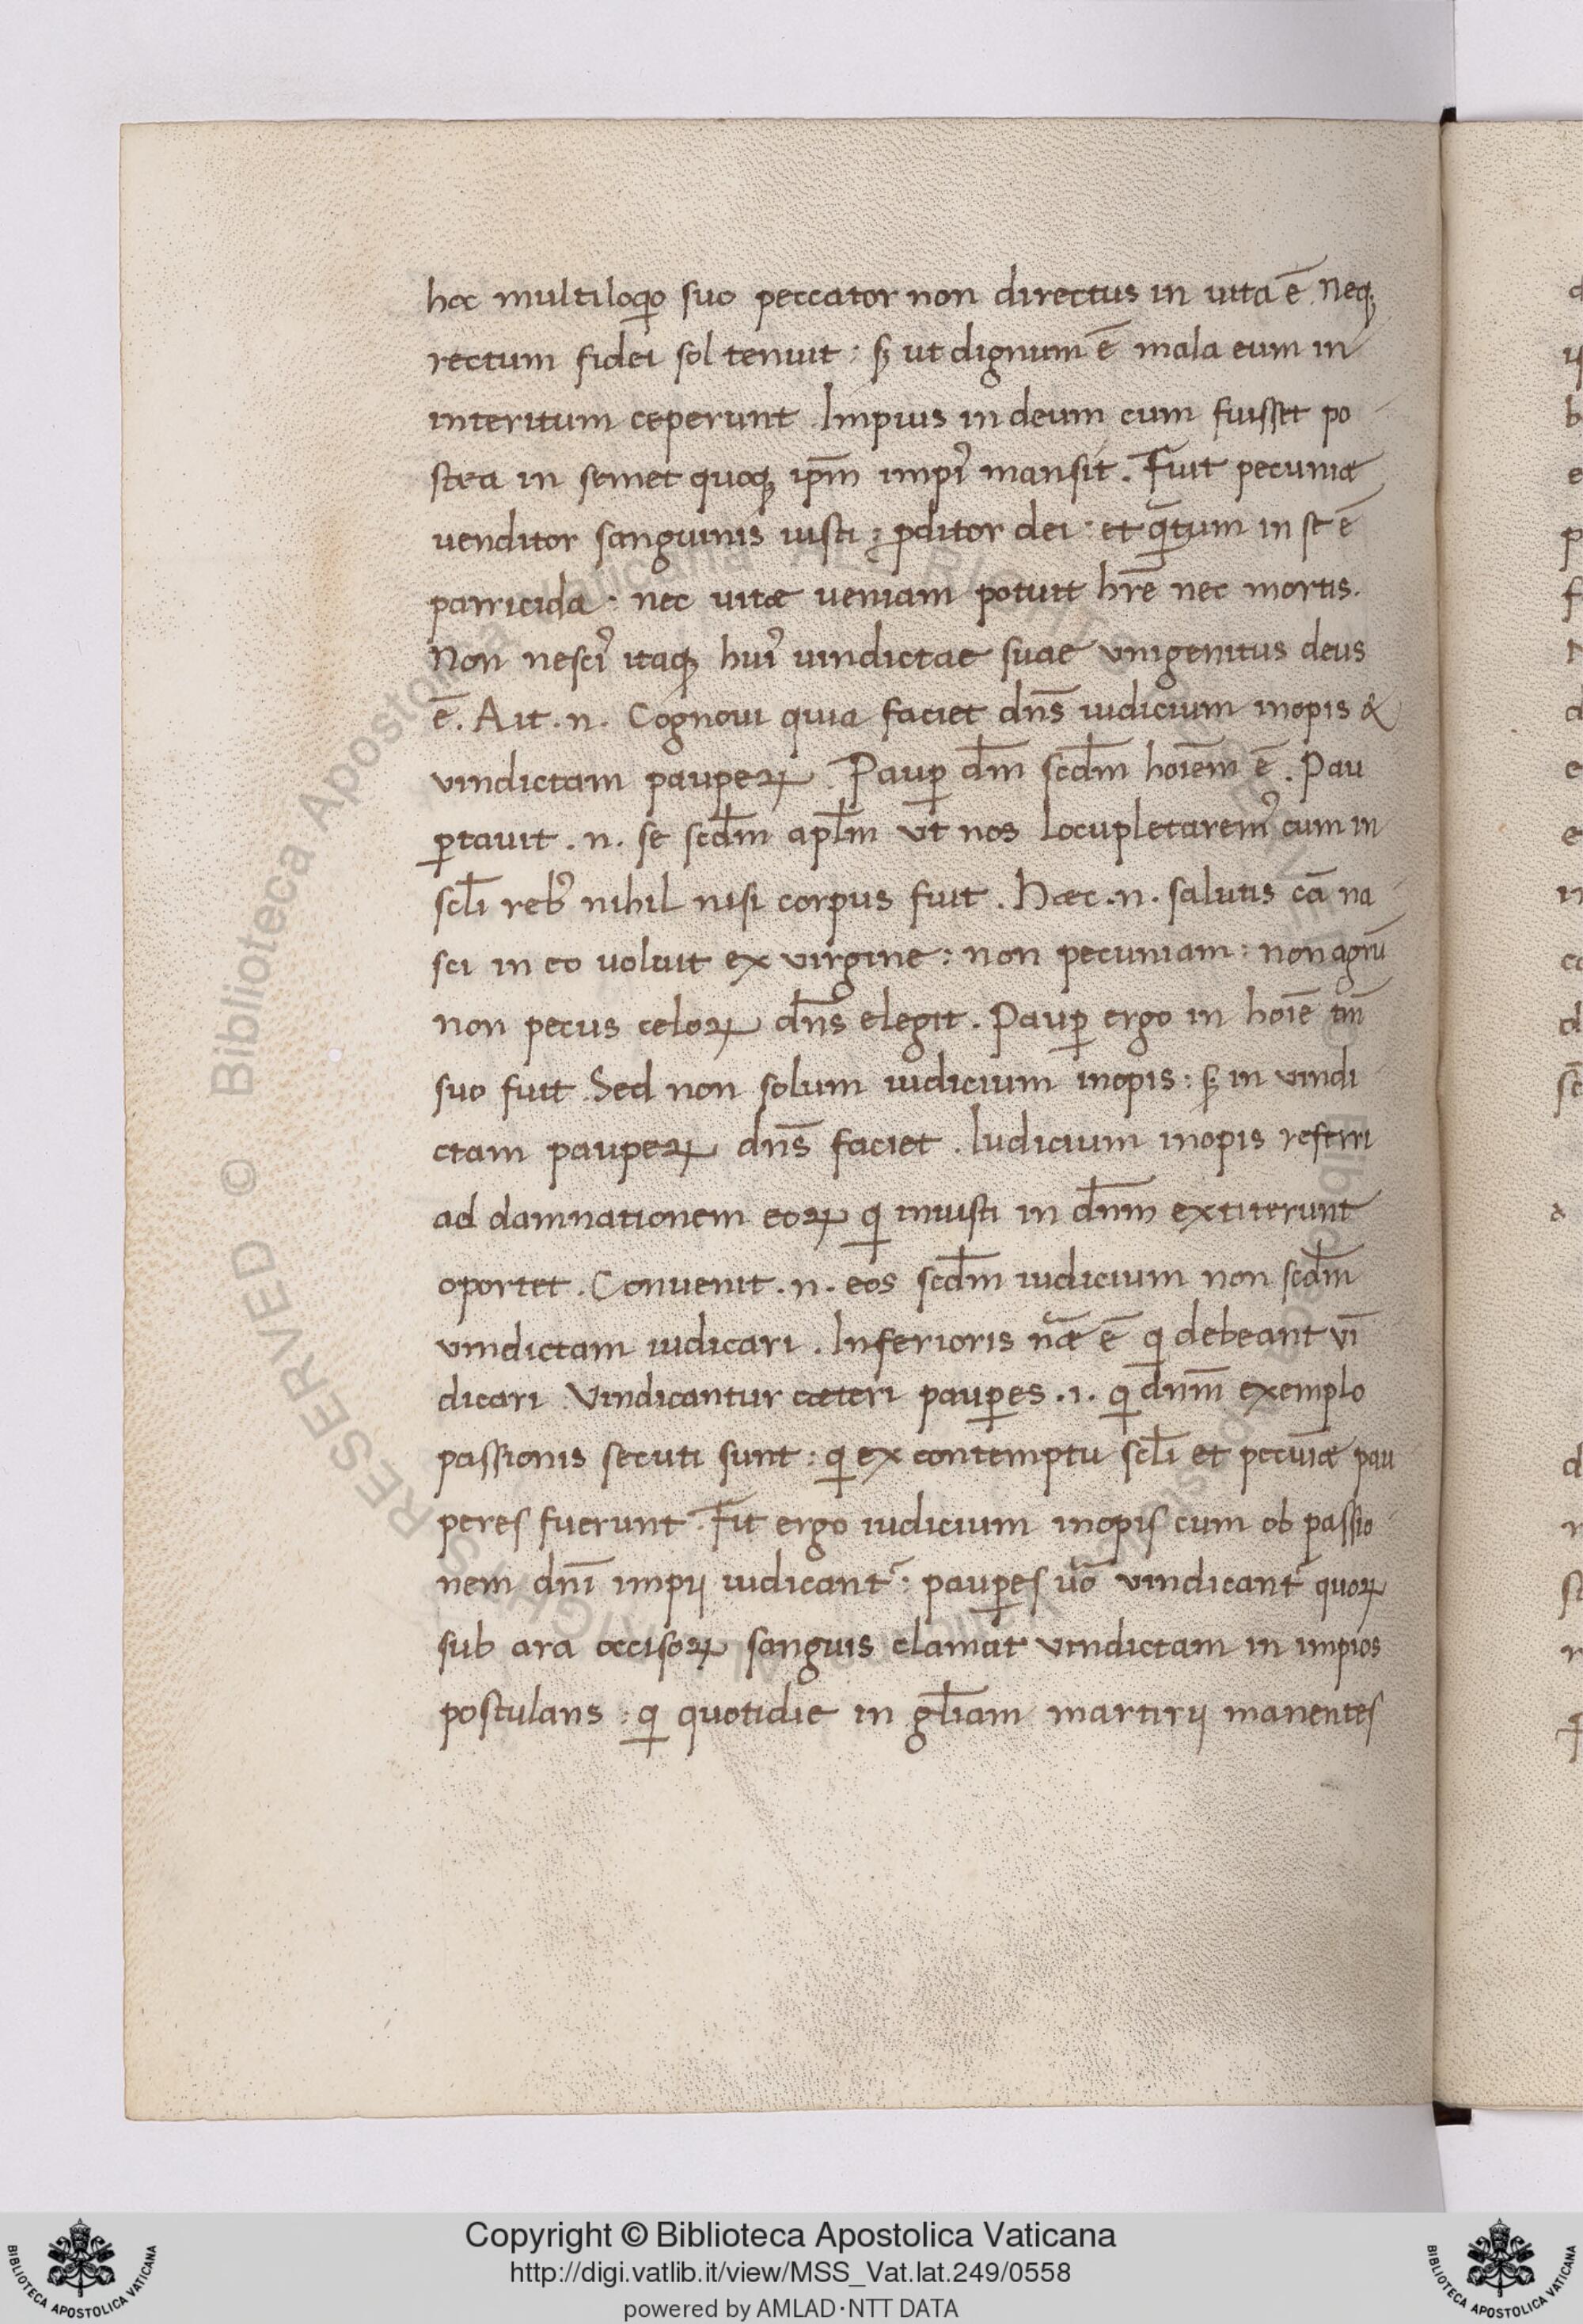 hoc multiloq̃o suo peccator non directus in uita ē. Neq;
rectum fidei sol tenuit : sꝫ ut dignum ē mala eum in
interitum ceperunt. Impius in deum cum fuisset po
stea in semet quoq; ip̄m impi᾽ mansit. Fuit pecuniæ
uenditor sanguinis iusti : ꝓditor dei : et q̄tum in se ē
parricida : nec uitæ ueniam potuit hr̄e nec mortis.
Non nesci᾽ itaq; hui᾽ uindictae suae vnigenitus deus
ē. Ait .n. Cognoui quia faciet dn̄s iudicium inopis &
vindictam pauperꝝ. Paup̲ dm̄ scd̄m hoīem ē. Pau
ꝑtauit .n. se scd̄m apl̄m vt nos locupletarem᾽ cum in
scl̄i reb᾽ nihil nisi corpus fuit. Hæc .n. salutis cā na
sci in eo uoluit ex virgine : non pecuniam : non agrū
non pecus celoꝝ dn̄s elegit. Pauꝑ ergo in hoīe tm̄
suo fuit. Sed non solum iudicium inopis : sꝫ in vindi
ctam pauperꝝ dn̄s faciet. Iudicium inopis referri
ad damnationem eoꝝ q iniusti in dn̄m extiterunt
oportet. Conuenit .n. eos scd̄m iudicium non scd̄m
vindictam iudicari. Inferioris nāe ē q debeant vī
dicari. Vindicantur cæteri pauꝑes .i. q dn̄m exemplo
passionis secuti sunt : q ex contemptu scl̄i et pecuīæ pau
peres fuerunt. Fit ergo iudicium inopis cum ob passio
nem dn̄i impij iudicant᾽ : pauꝑes uō vindicant᾽ quoꝝ
sub ara occisoꝝ sanguis clamat vindictam in impios
postulans : q quotidie in gl̄iam martirij manentes
Copyright © Biblioteca Apostolica Vaticana
http://digi.vatlib.it/view/MSS_Vat.lat.249/0558
powered by AMLAD·NTT DATA